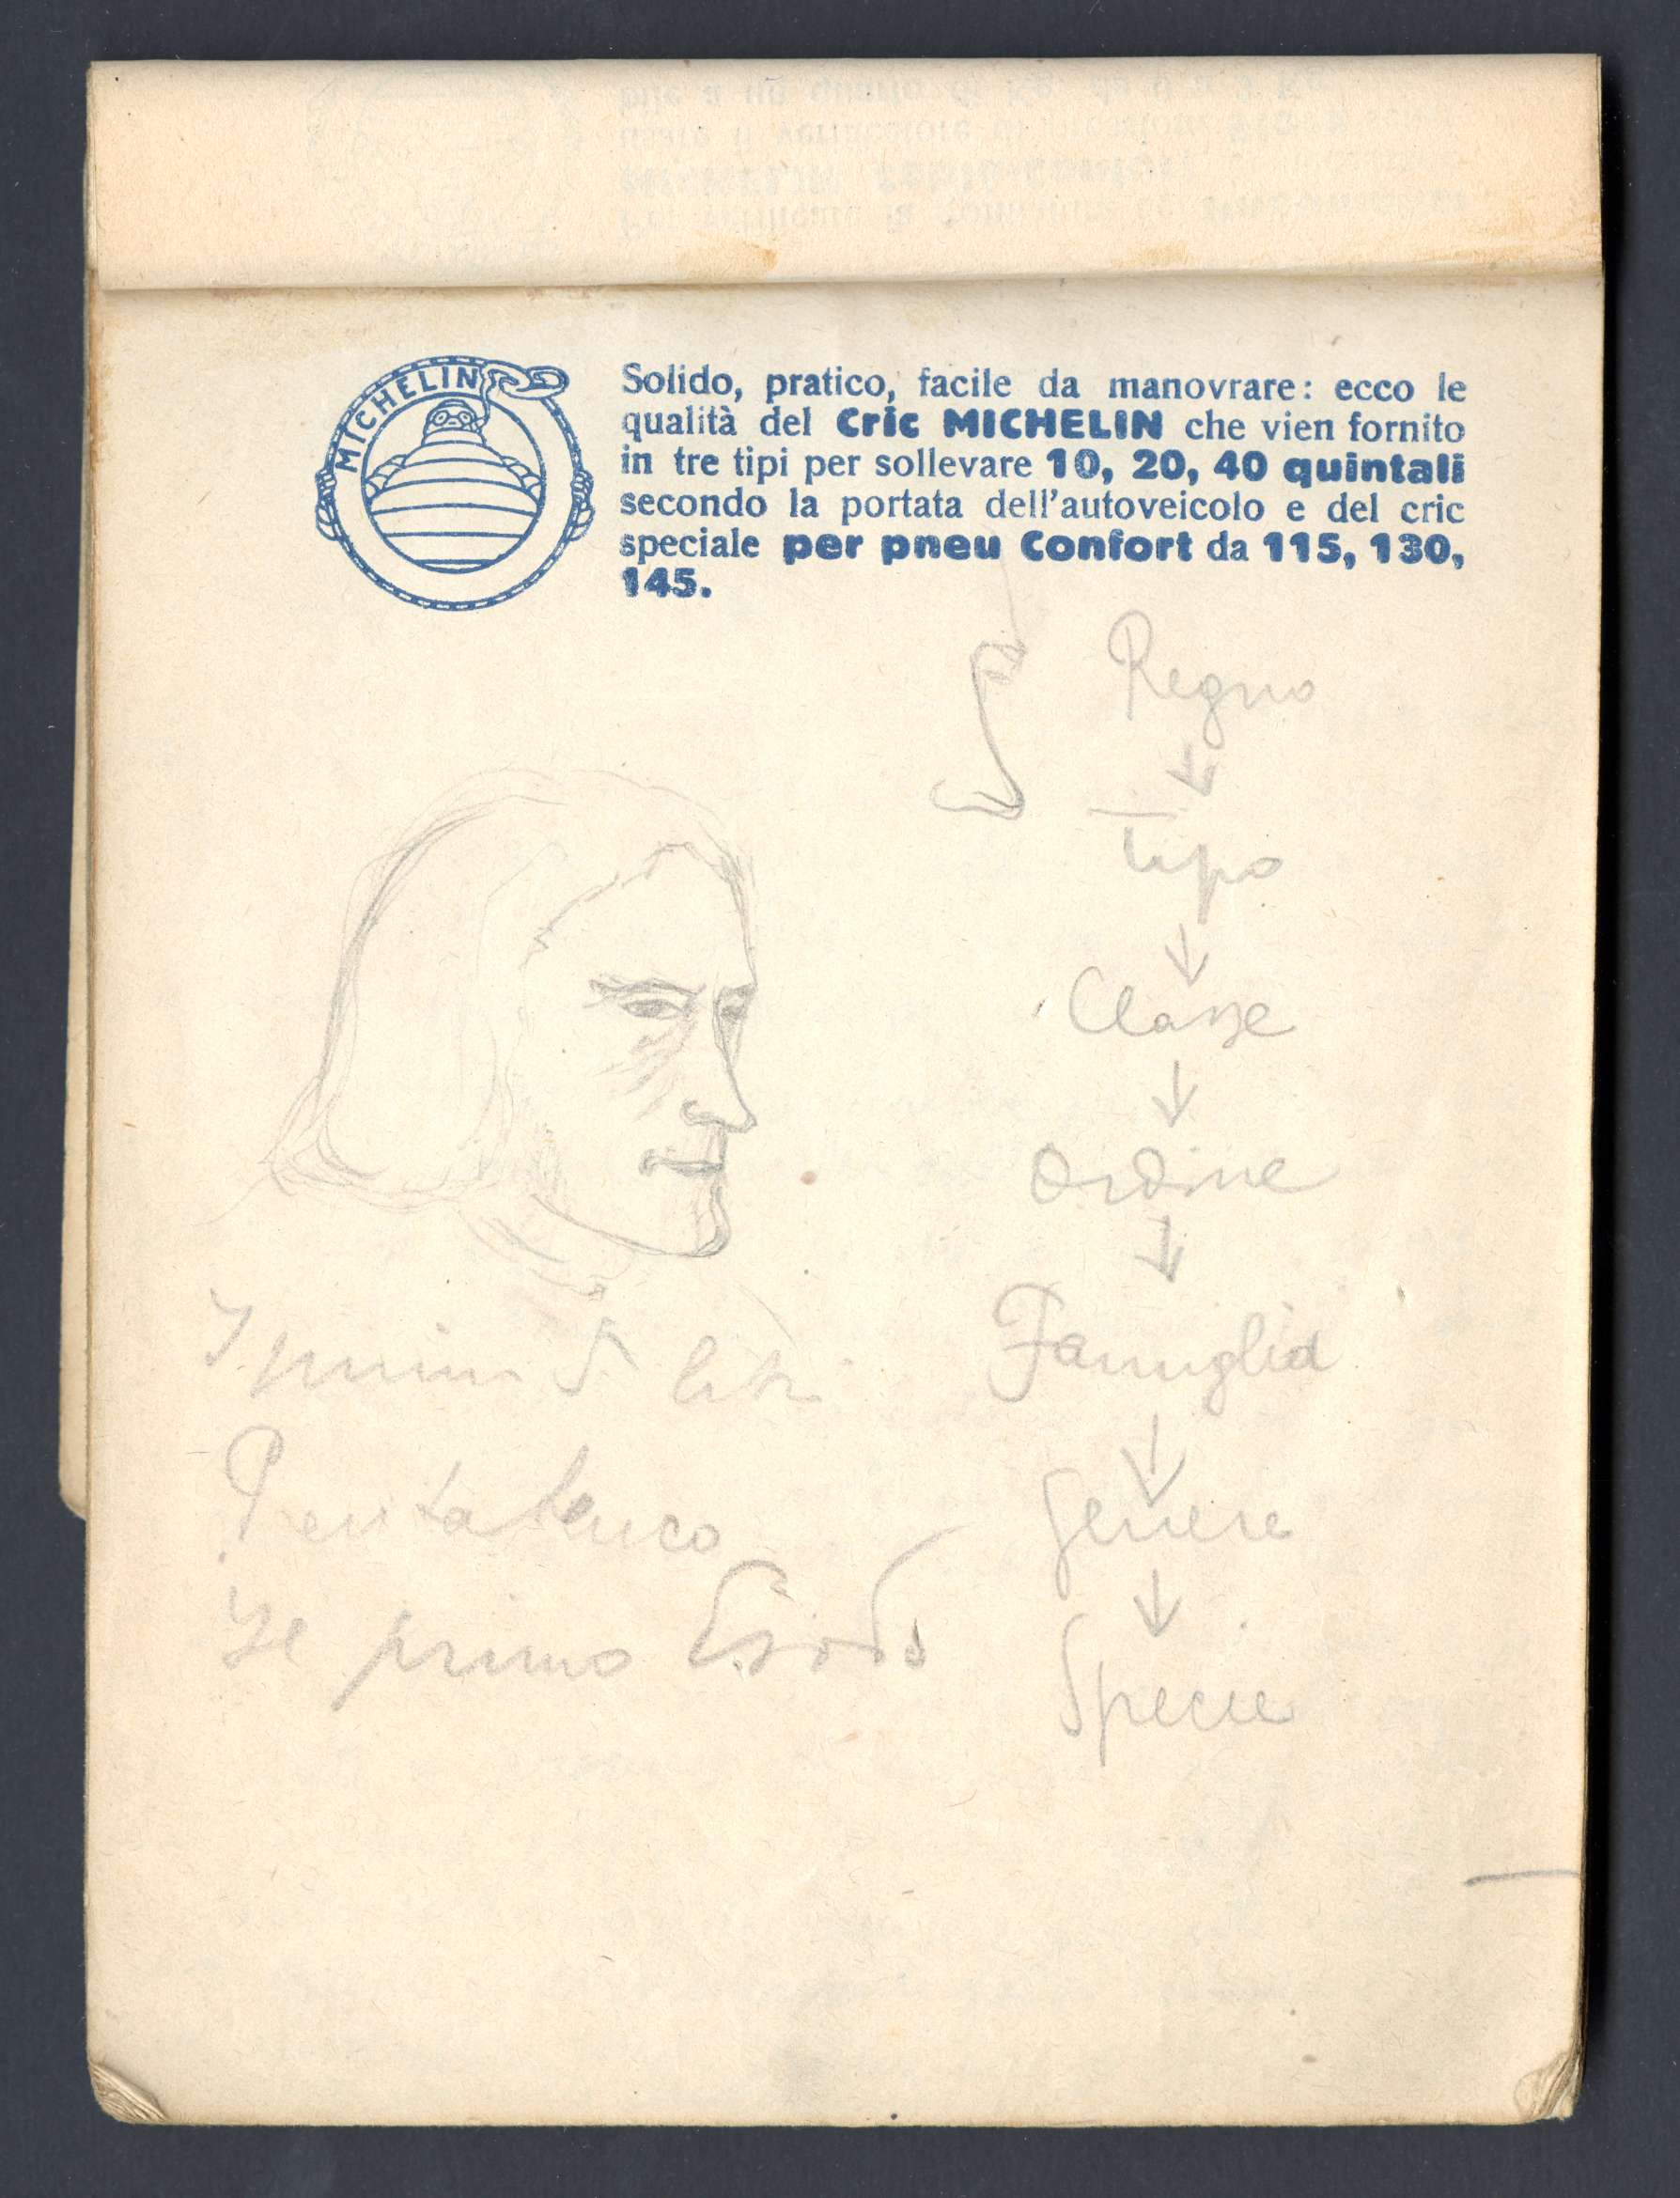 MICHELIN
Solido, pratico, facile da manovrare: ecco le
qualità del Cric MICHELIN che vien fornito
in tre tipi per sollevare 10, 20, 40 quintali
secondo la portata dell'autoveicolo e del cric
speciale per pneu Confort da 115, 130,
145.
Regno
Tipo
Classe
Ordine
Famiglia
Genere
Specie
I primi 5 libri
Pentateuco
Il primo Esodo